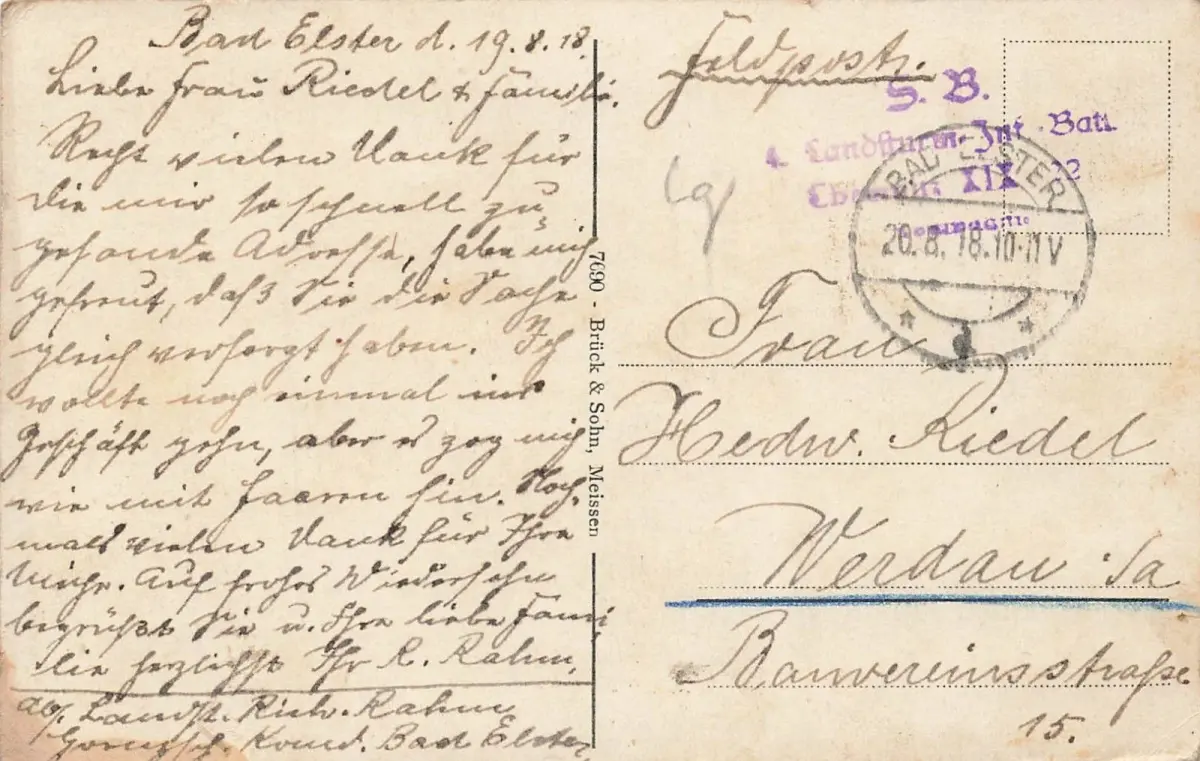 Bad Elster d. 19.8.18.
Liebe Frau Riedel & Familie.
Recht vielen Dank für
die mir so schnell zu-
gesande Adresse, habe mich
gefreut, daß Sie die Sache
gleich versorgt haben. Ich
wollte noch einmal ins
Geschäft gehn, aber es zog mich
wie mit Haaren hin. Noch-
mals vielen Dank für Ihre
Mühe. Auf frohes Wiedersehn
begrüßt Sie u. Ihre liebe Fami
lie herzlichst Ihr R. Rahm.
Landst. Rich. Rahm
Komd. Bad Elster
7690 - Brück & Sohn, Meissen
Feldpost.
S. B.
4. Landsturm-Inf.-Batl.
Chemnitz XIX 22
BAD ELSTER
20.8.18.10-11V
* d *
Frau
Hedw. Riedel
Werdau Sa
Bauvereinsstraße
15.